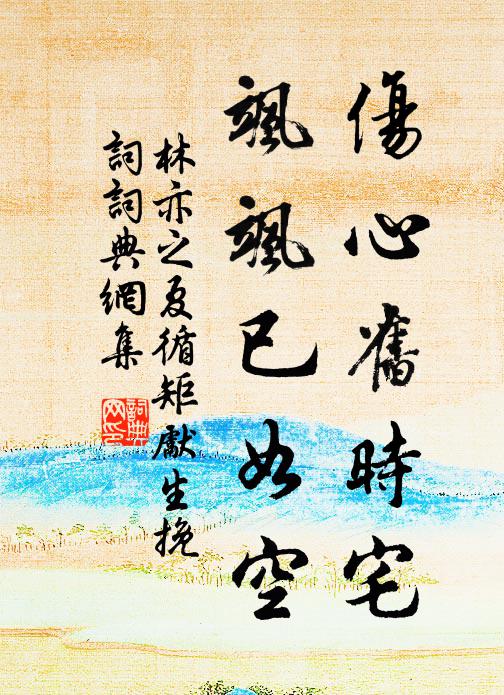 傷心舊時宅
颯颯已如空
林亦之夏循矩獻生挽
詞詞典網集
詞典網印